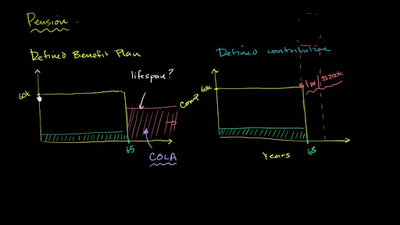 Pension.
Defined Benefit Plan
Defined contribution
lifespan?
60k
Comp
COLA
65
60k
1M
$1200k
Years
65